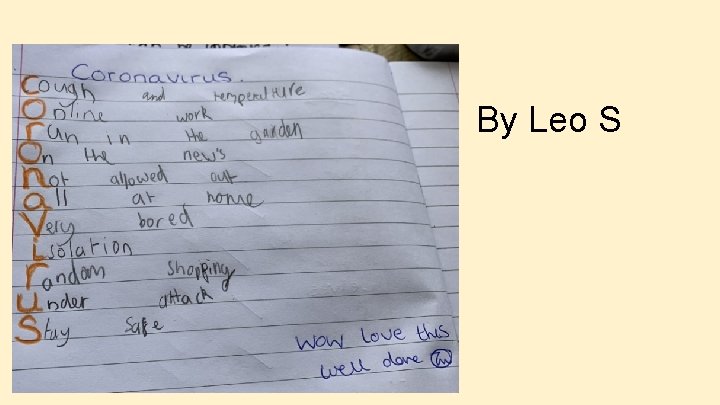 Coronavirus.
Cough and temperature
Online work
run in the garden
On the new's
not allowed out
all at home
Very bored
isolation
random shopping
under attack
Stay safe
Wow love this
well done
By Leo S